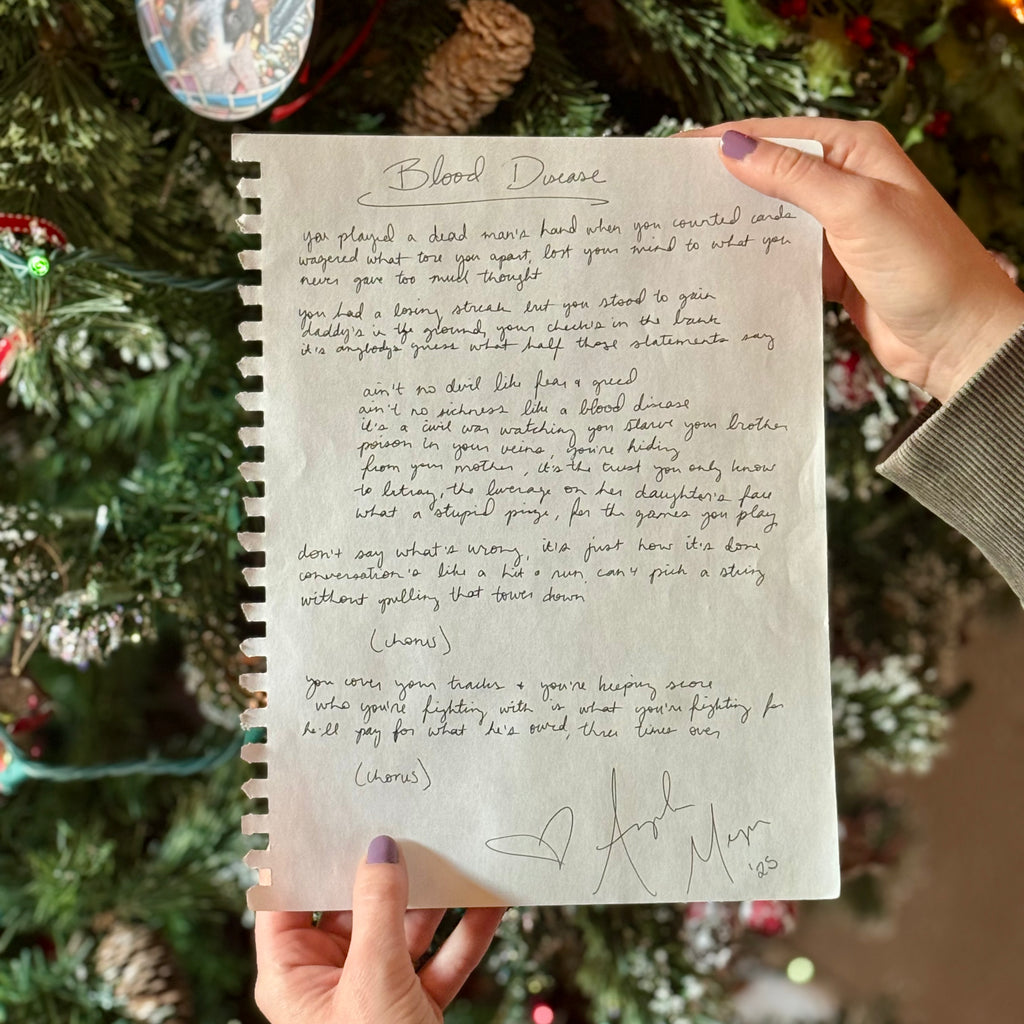 Blood Disease
you played a dead man's hand when you counted cards
wagered what tore you apart, lost your mind to what you
never gave too much thought
you had a losing streak but you stood to gain
daddy's in the ground, your check's in the bank
it's anybody's guess what half those statements say
ain't no devil like fear & greed
ain't no sickness like a blood disease
it's a civil war watching you starve your brother
poison in your veins, you're hiding
from your mother, it's the trust you only know
to betray, the leverage on her daughter's face
what a stupid prize, for the games you play
don't say what's wrong, it's just how it's done
conversation's like a hit & run, can't pick a string
without pulling that tower down
(chorus)
you cover your tracks & you're keeping score
who you're fighting with is what you're fighting for
he'll pay for what he's owed, three times over
(chorus)
'25